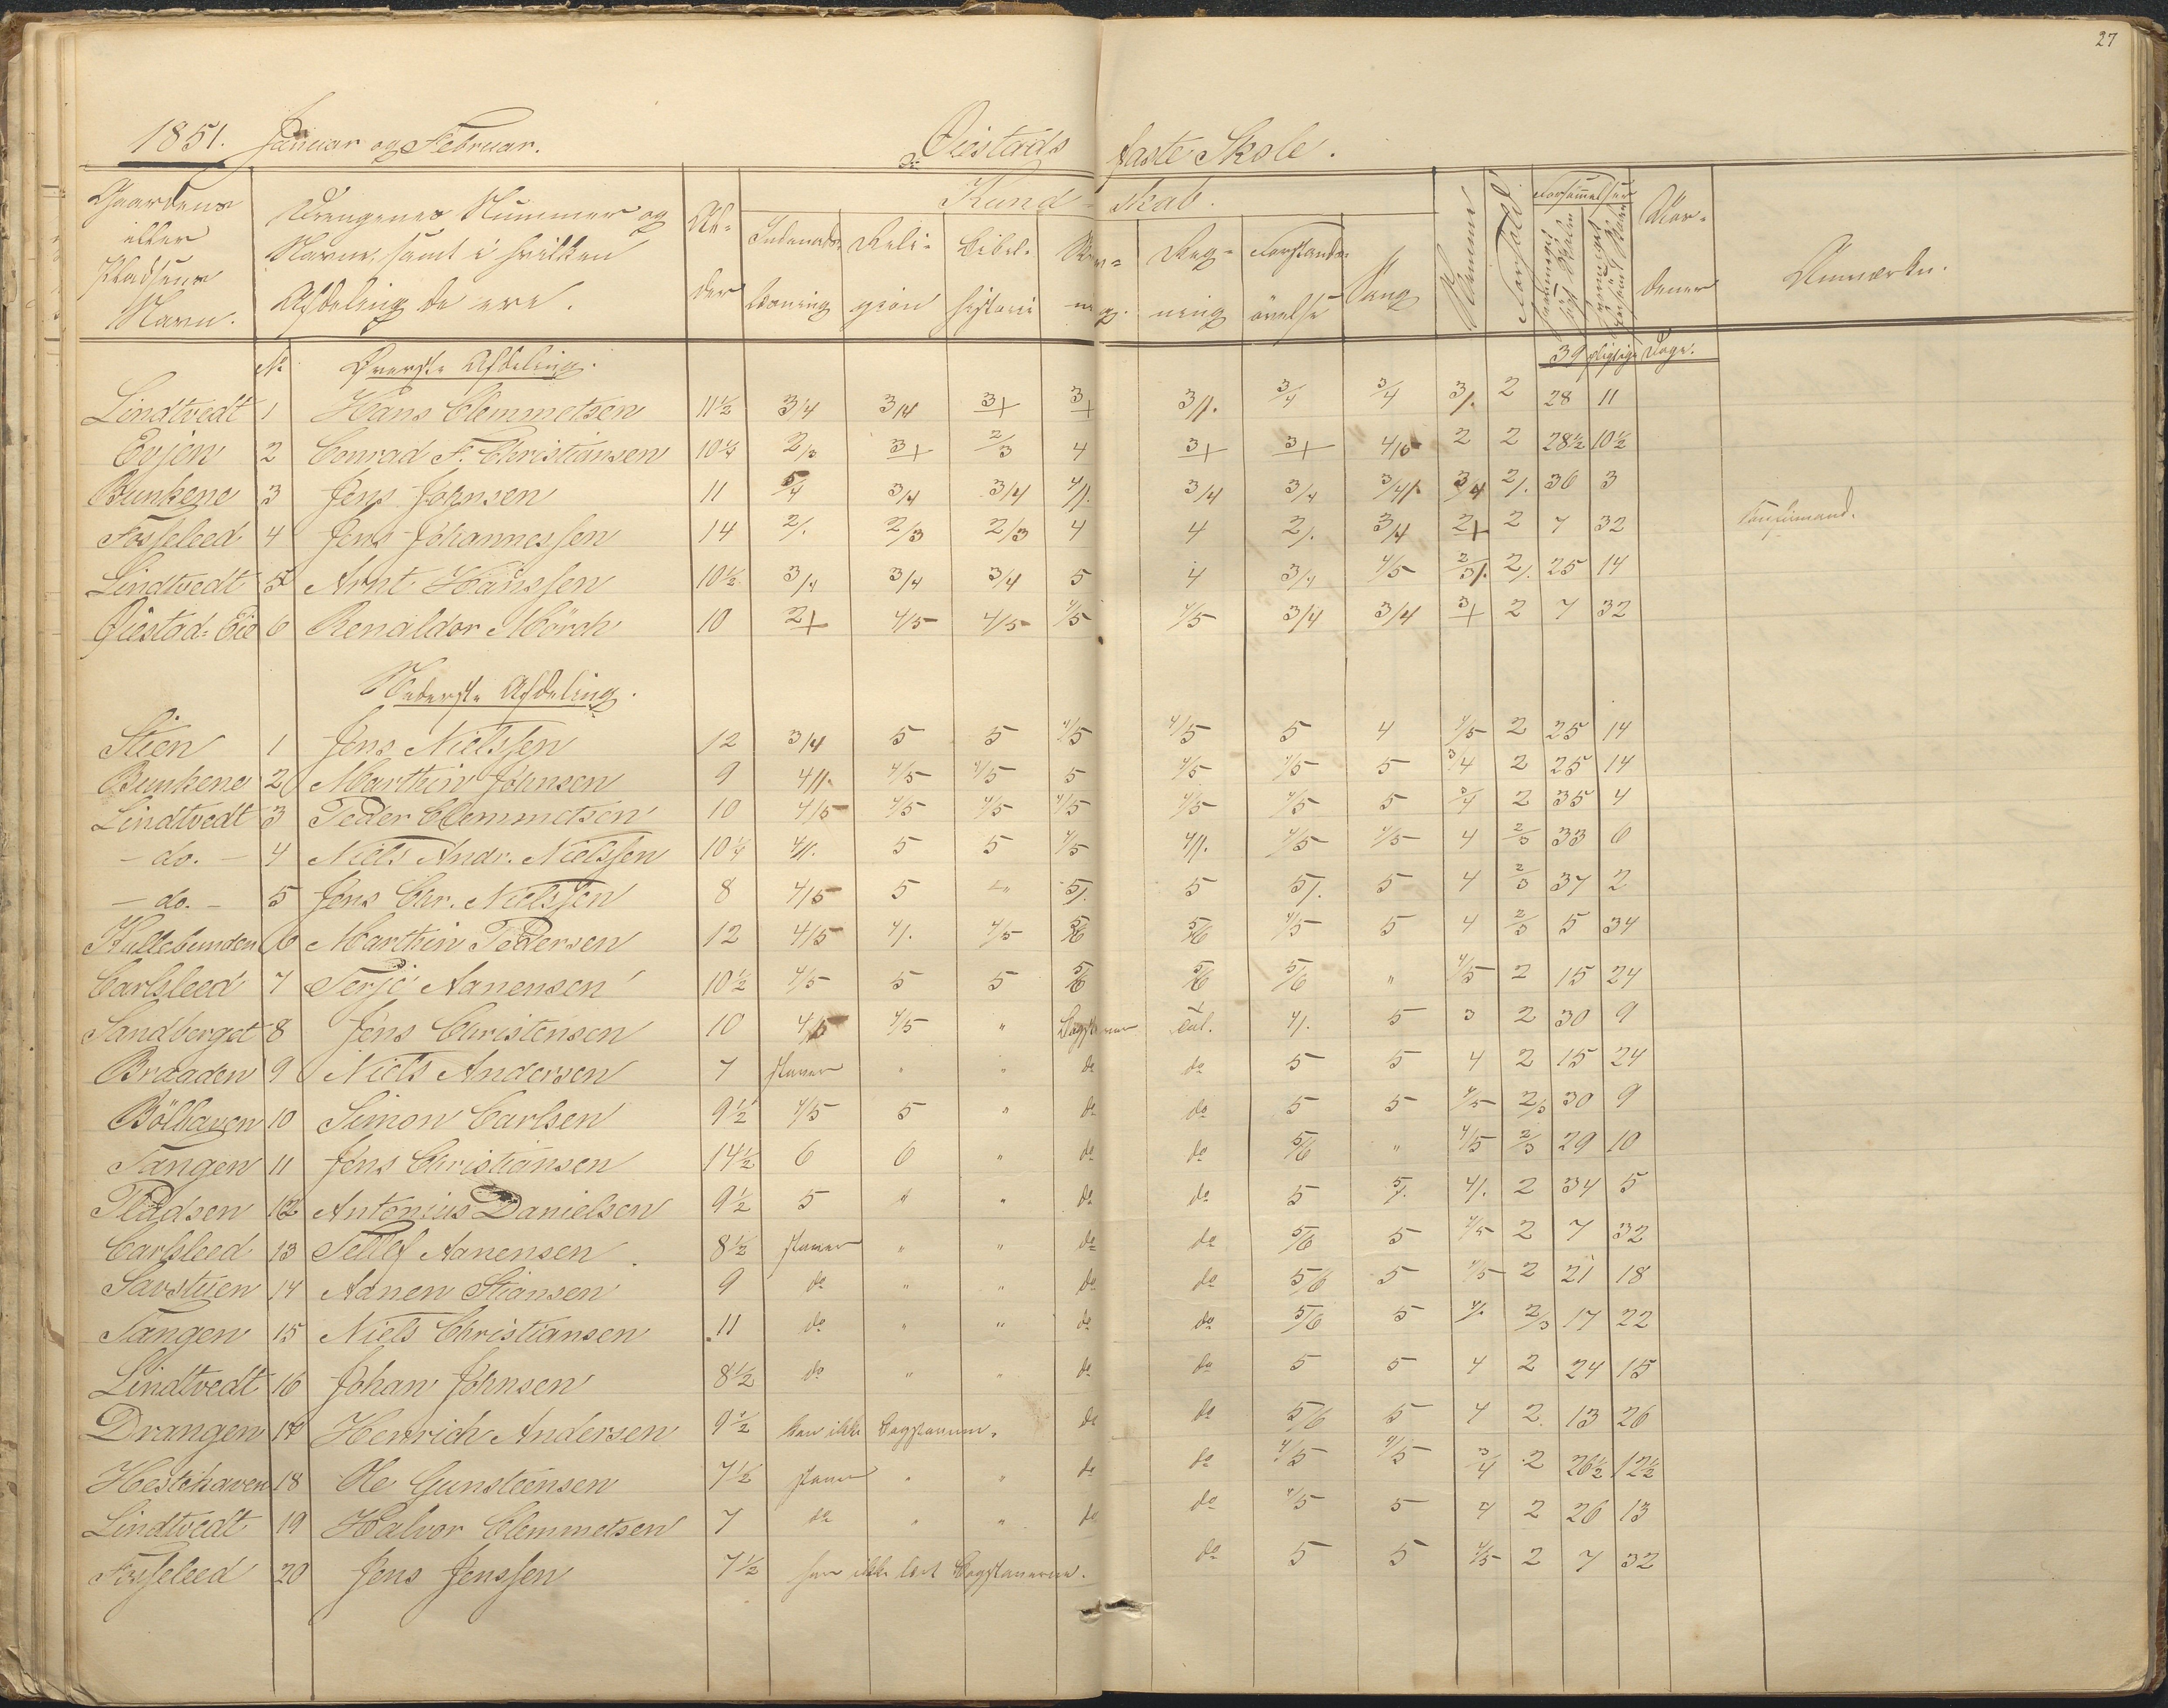 27
1851. Januar og Februar. Øiestads faste Skole.
Gaardens eller Pladsens Navn.
Drengenes Nummer og Navne, samt i hvilken Afdeling de ere.
Al- der
Kund - skab.
Indenads- læsning
Reli- gion
Bibel- historie
Skriv- ning.
Reg- ning
Forstands- øvelse
Sang
Nemme
Forhold
Forsømmelser
Mær- Anmærkn.
No Øverste Afdeling. 39 pligtige Dage.
Lindtvedt 1 Hans Clemmetsen 11½ 3/4 3/4 3+ 3+ 3/. 3/4 3/4 3/. 2 28 11
Eyjen 2 Conrad F. Christiansen 10¼ 2/3 3+ 2/3 4 3+ 3+ 4/5 2 2 28½ 10½
Bunkene 3 Jens Johnsen 11 3/4 3/4 4/. 3/4 3/4 3/4 3/4 2/. 36 3
Fosseleed 4 Jens Johannessen 14 2/. 2/3 2/3 4 4 2/. 3/4 2+ 2 7 32 Konfirmand.
Lindtvedt 5 Arnt Hanssen 10½ 3/4 3/4 3/4 5 4 3/4 4/5 2/3/. 2/. 25 14
Øiestad: Eie 6 Renaldor Mörch 10 2+ 4/5 4/5 4/5 4/5 3/4 3/4 3+ 2 7 32
Nederste Afdeling.
Stien 1 Jens Nielssen 12 3/4 5 5 4/5 4/5 5 4 4/5 2 25 14
Bunkene 2 Marthin Johnsen 9 4/. 4/5 4/5 5 4/5 4/5 5 3/4 2 25 14
Lindtvedt 3 Peder Clemmetsen 10 4/5 4/5 4/5 4/5 4/5 4/5 5 3/4 2 35 4
- do. - 4 Niels Andr. Nielssen 10¼ 4/. 5 5 4/5 4/. 4/5 4/5 4 2/3 33 6
- do. - 5 Jens Chr. Nielssen 8 4/5 5 5/. 5 5/. 5 4 2/3 37 2
Hullebunden 6 Marthin Pedersen 12 4/5 4/. 4/5 5/6 5/6 4/5 5 4 2/3 5 34
Carlsleed 7 Terje Aanensen 10½ 4/5 5 5 5/6 5/6 5/6 " 4/5 2 15 24
Sandberget 8 Jens Christensen 10 4/5 4/5 " Bogstaver Tal. 4/. 5 3 2 30 9
Braaden 9 Niels Andersen 7 staver " " do do 5 5 4 2 15 24
Bölhaven 10 Simon Carlsen 9½ 4/5 5 " do do 5 5 4/5 2/3 30 9
Tangen 11 Jens Christiansen 14½ 6 6 " do do 5/6 " 4/5 2/3 29 10
Pladsen 12 Antonius Danielsen 9½ 5 " " do do 5 5/. 4/. 2 34 5
Carlsleed 13 Tellef Aanensen 8½ staver " " do do 5/6 5 4/5 2 7 32
Savstuen 14 Aanen Stiansen 9 do " " do do 5/6 5 4/5 2 21 18
Tangen 15 Niels Christiansen 11 do " " do do 5/6 5 4/. 2/3 17 22
Lindtvedt 16 Johan Johnsen 8½ do " " do do 5 5 4 2 24 15
Drangen 17 Henrich Andersen 9½ kan ikke Bogstaverne. do do 5/6 5 4 2 13 26
Hestehaven 18 Ole Gunsteensen 7½ staver " " do do 4/5 4/5 3/4 2 26½ 12½
Lindtvedt 19 Halvor Clemmetsen 7 do " " do do 4/5 5 4 2 26 13
Fosseleed 20 Jens Jenssen 7½ har ikke lært Bogstaverne. do 5 5 4/5 2 7 32